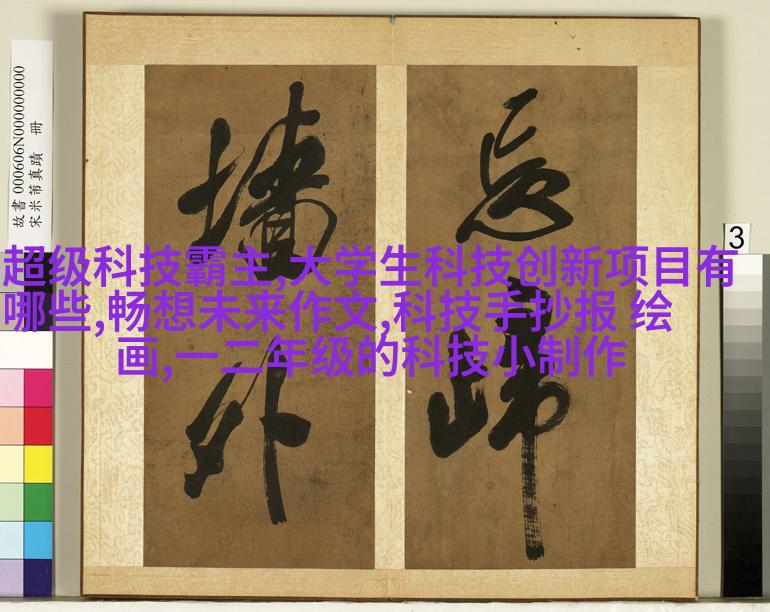 超级科技霸主,大学生科技创新项目有
哪些,畅想未来作文,科技手抄报 绘
画,一二年级的科技小制作
忘歸
墻外
故書 000606N000000000
宋米芾真蹟 冊
3